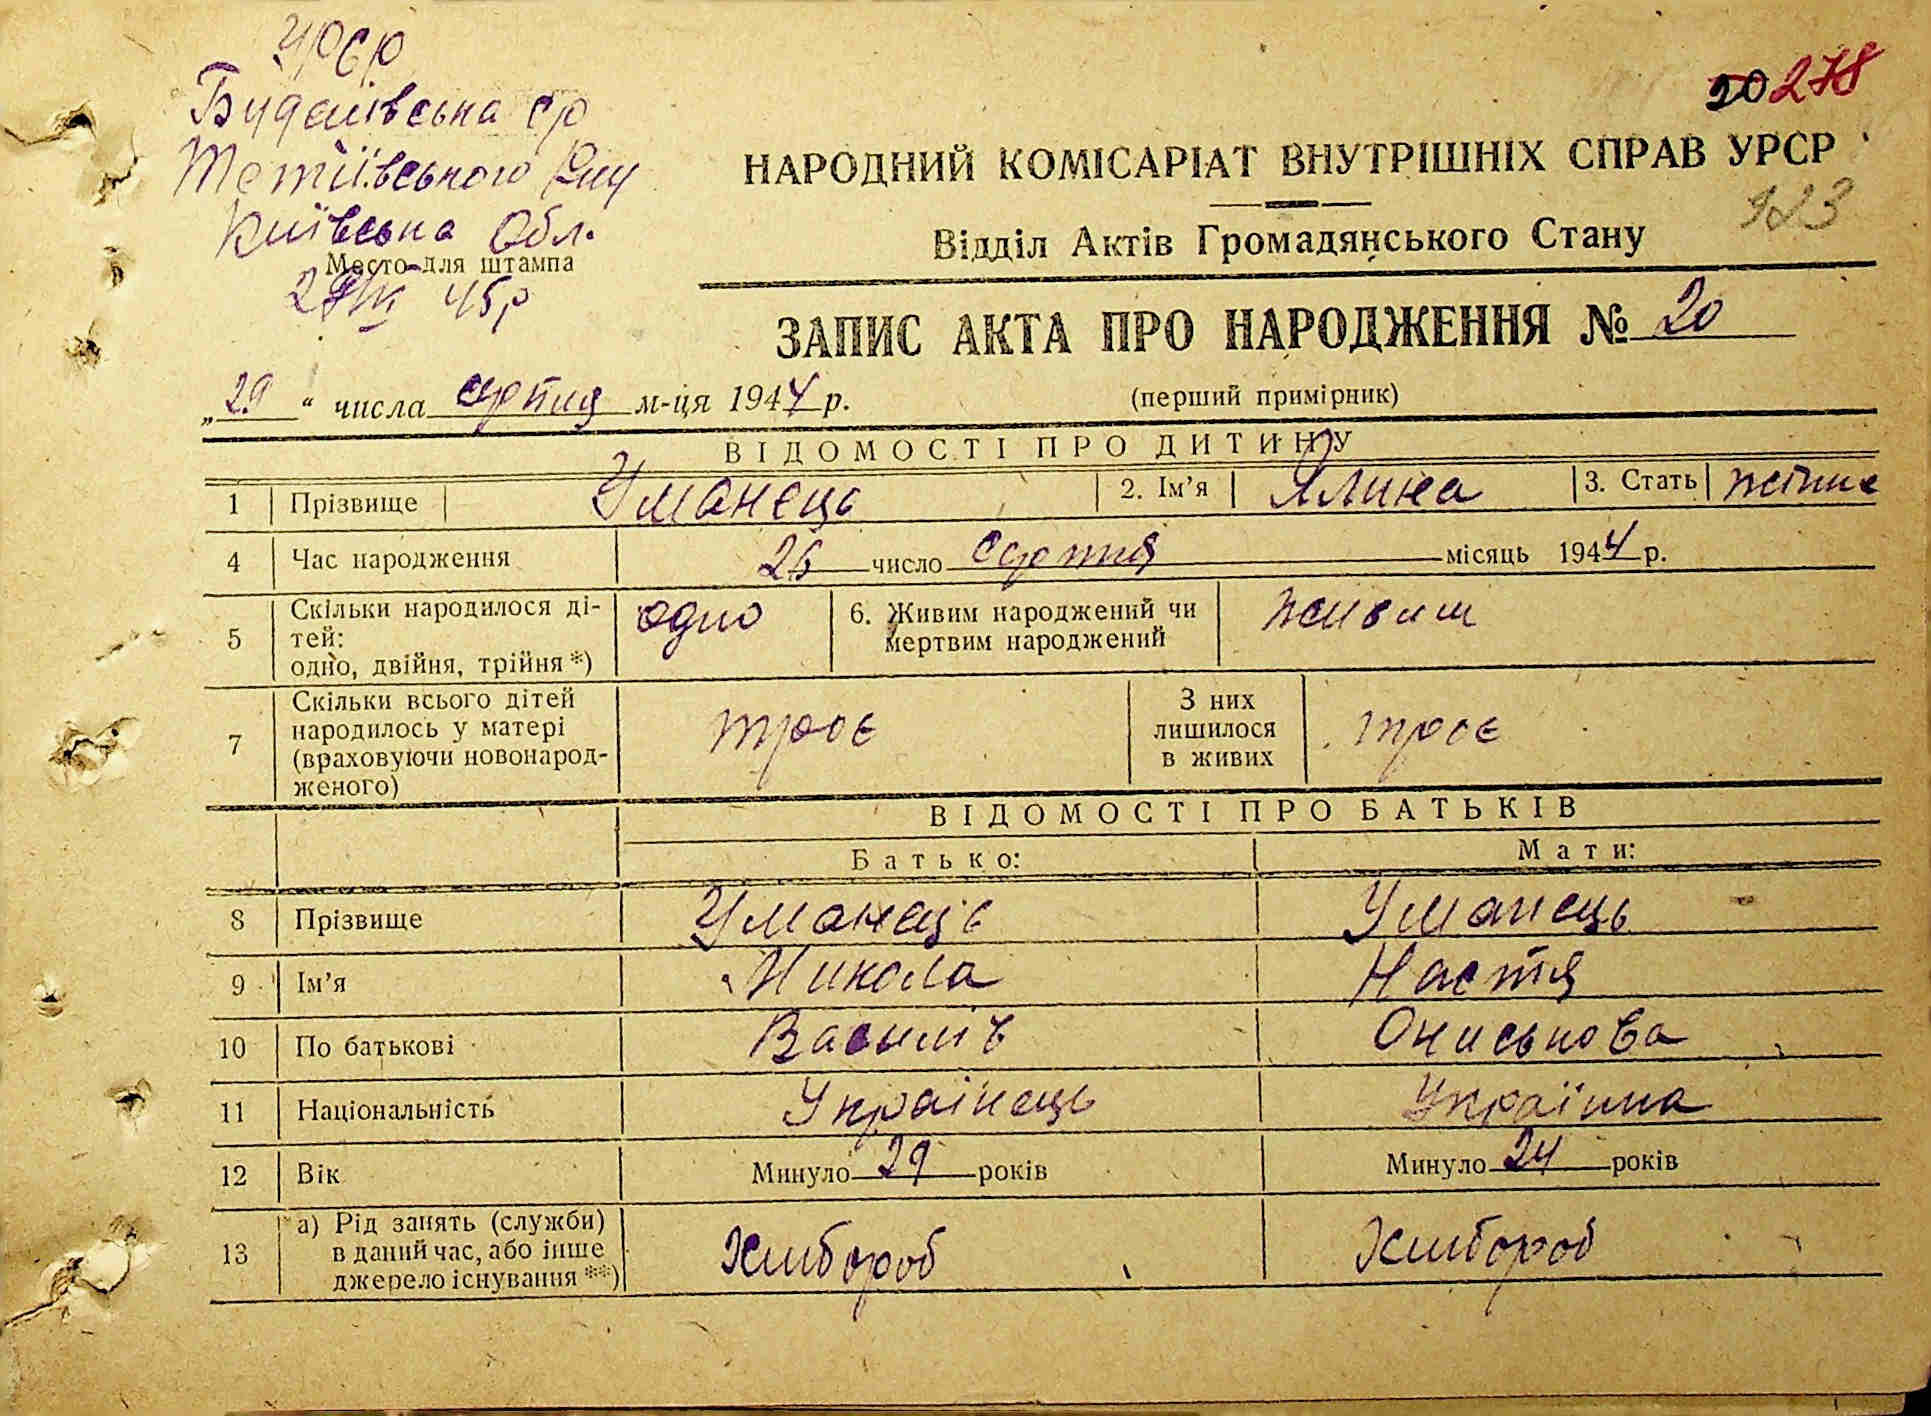 УРСР
20 278
Тетіївського р-ну
Київська Обл.
Место для штампа
45р
НАРОДНИЙ КОМІСАРІАТ ВНУТРІШНІХ СПРАВ УРСР
123
Відділ Актів Громадянського Стану
ЗАПИС АКТА ПРО НАРОДЖЕННЯ № 20
„29“ числа серпня м-ця 1944 р.
(перший примірник)
ВІДОМОСТІ ПРО ДИТИНУ
1 Прізвище Уманець 2. Ім'я Ялина 3. Стать
4 Час народження 26 число серпня місяць 1944 р.
5 Скільки народилося ді-
тей:
одно, двійня, трійня *)
одно
6. Живим народжений чи
мертвим народжений
живим
7 Скільки всього дітей
народилось у матері
(враховуючи новонарод-
женого)
троє
З них
лишилося
в живих
троє
ВІДОМОСТІ ПРО БАТЬКІВ
Батько: Мати:
8 Прізвище Уманець Уманець
9 Ім'я Микола Настя
10 По батькові Василів Ониськова
11 Національність Українець Українка
12 Вік Минуло 29 років Минуло 24 років
13 а) Рід занять (служби)
в даний час, або інше
джерело існування **)
Хлібороб Хлібороб